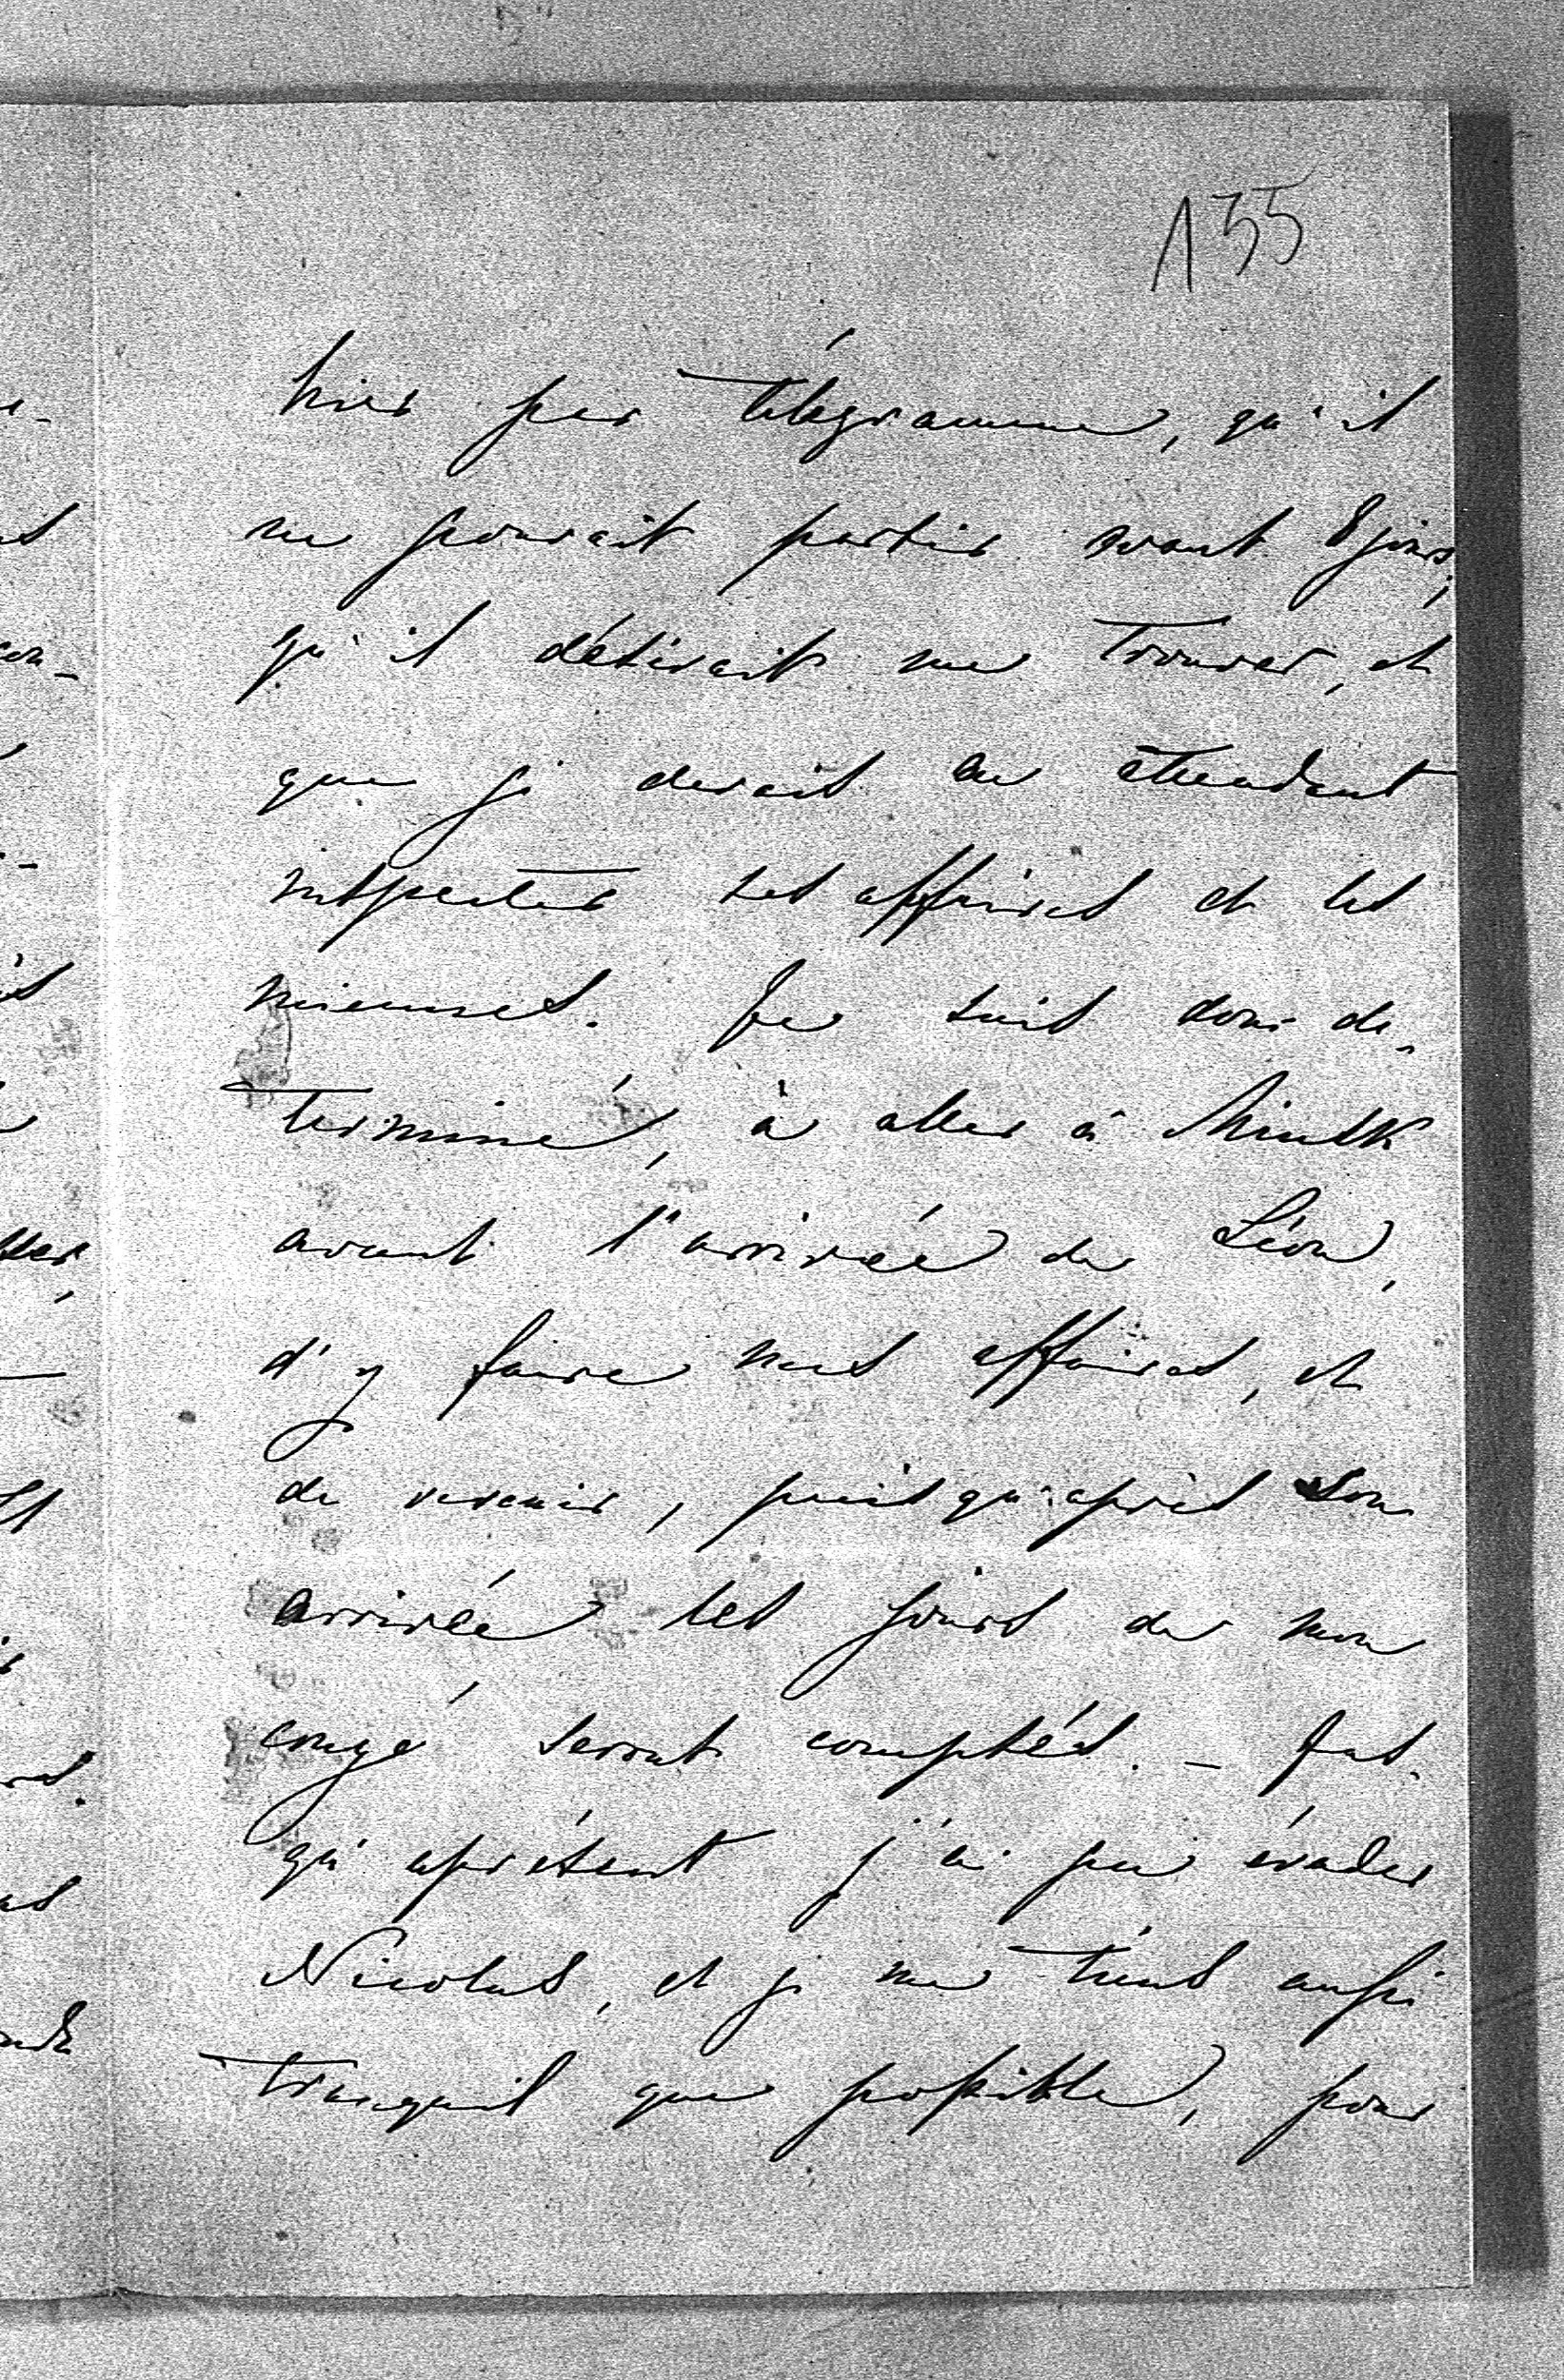 155
hier par télégramme, qu'il
ne pouvait partir avant 8 jours,
qu'il désirait me trouver, et
que je devais en attendant
inspecter ses affaires et les
miennes. Je suis donc dé-
terminé, à aller à Minsk
avant l'arrivée de Léon,
d'y faire mes affaires, et
de revenir, puisqu'après son
arrivée les jours de mon
congé seront comptés. – Jus-
qu'aprésent j'ai pu évader
Nicolas, et je me tiens aussi
tranquil que possible, pour